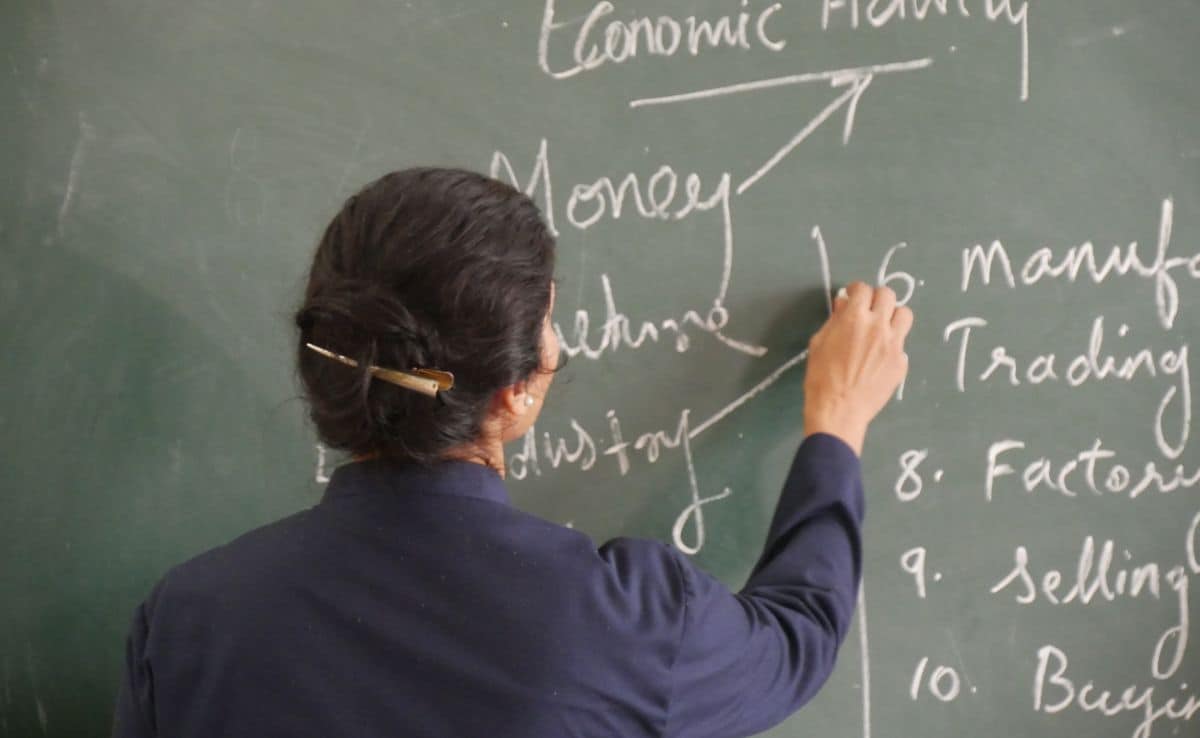 Economic Activity
Money
dustry
6. Manufa
Trading
8. Factori
9. Selling
10. Buyin